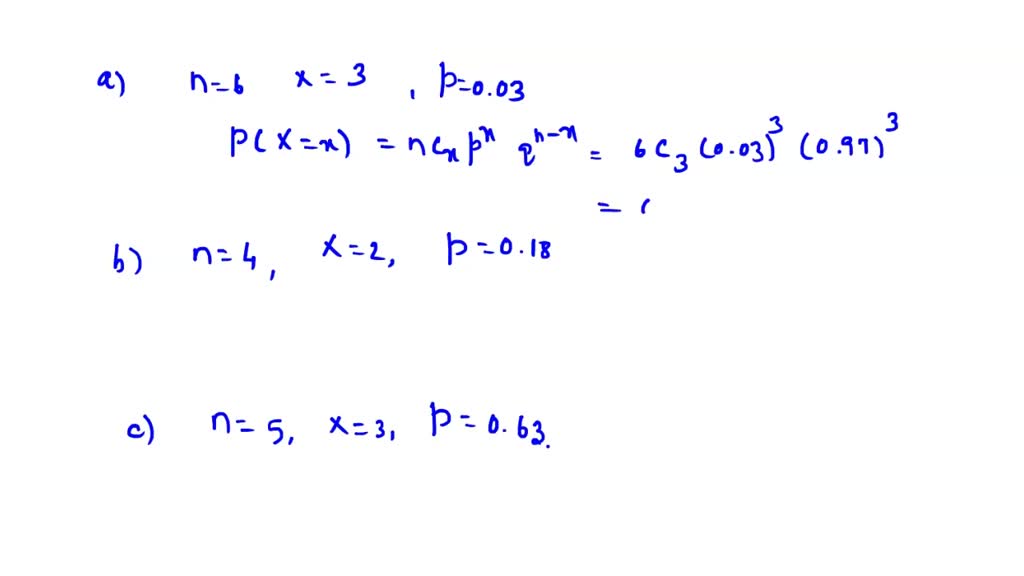 a) n=6 x=3 , p=0.03
P(X=x) = nCx p^x q^n-x = 6C3 (0.03)^3 (0.97)^3
= (
b) n=4, x=2, p=0.18
c) n=5, x=3, p=0.63.